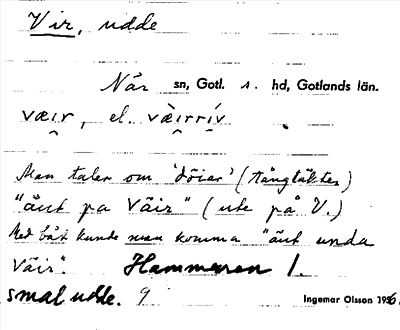 Vir, udde
När sn, Gotl. s. hd, Gotlands län.
væi̯r, el. væ̀i̯rrí̯v
Man talar om 'döiar' (tångtäkter)
"äut pa Väir" (ute på V.)
Med båt kunde man komma "äut unda
Väir". Hammaren 1.
smal udde. 9 Ingemar Olsson 1956.